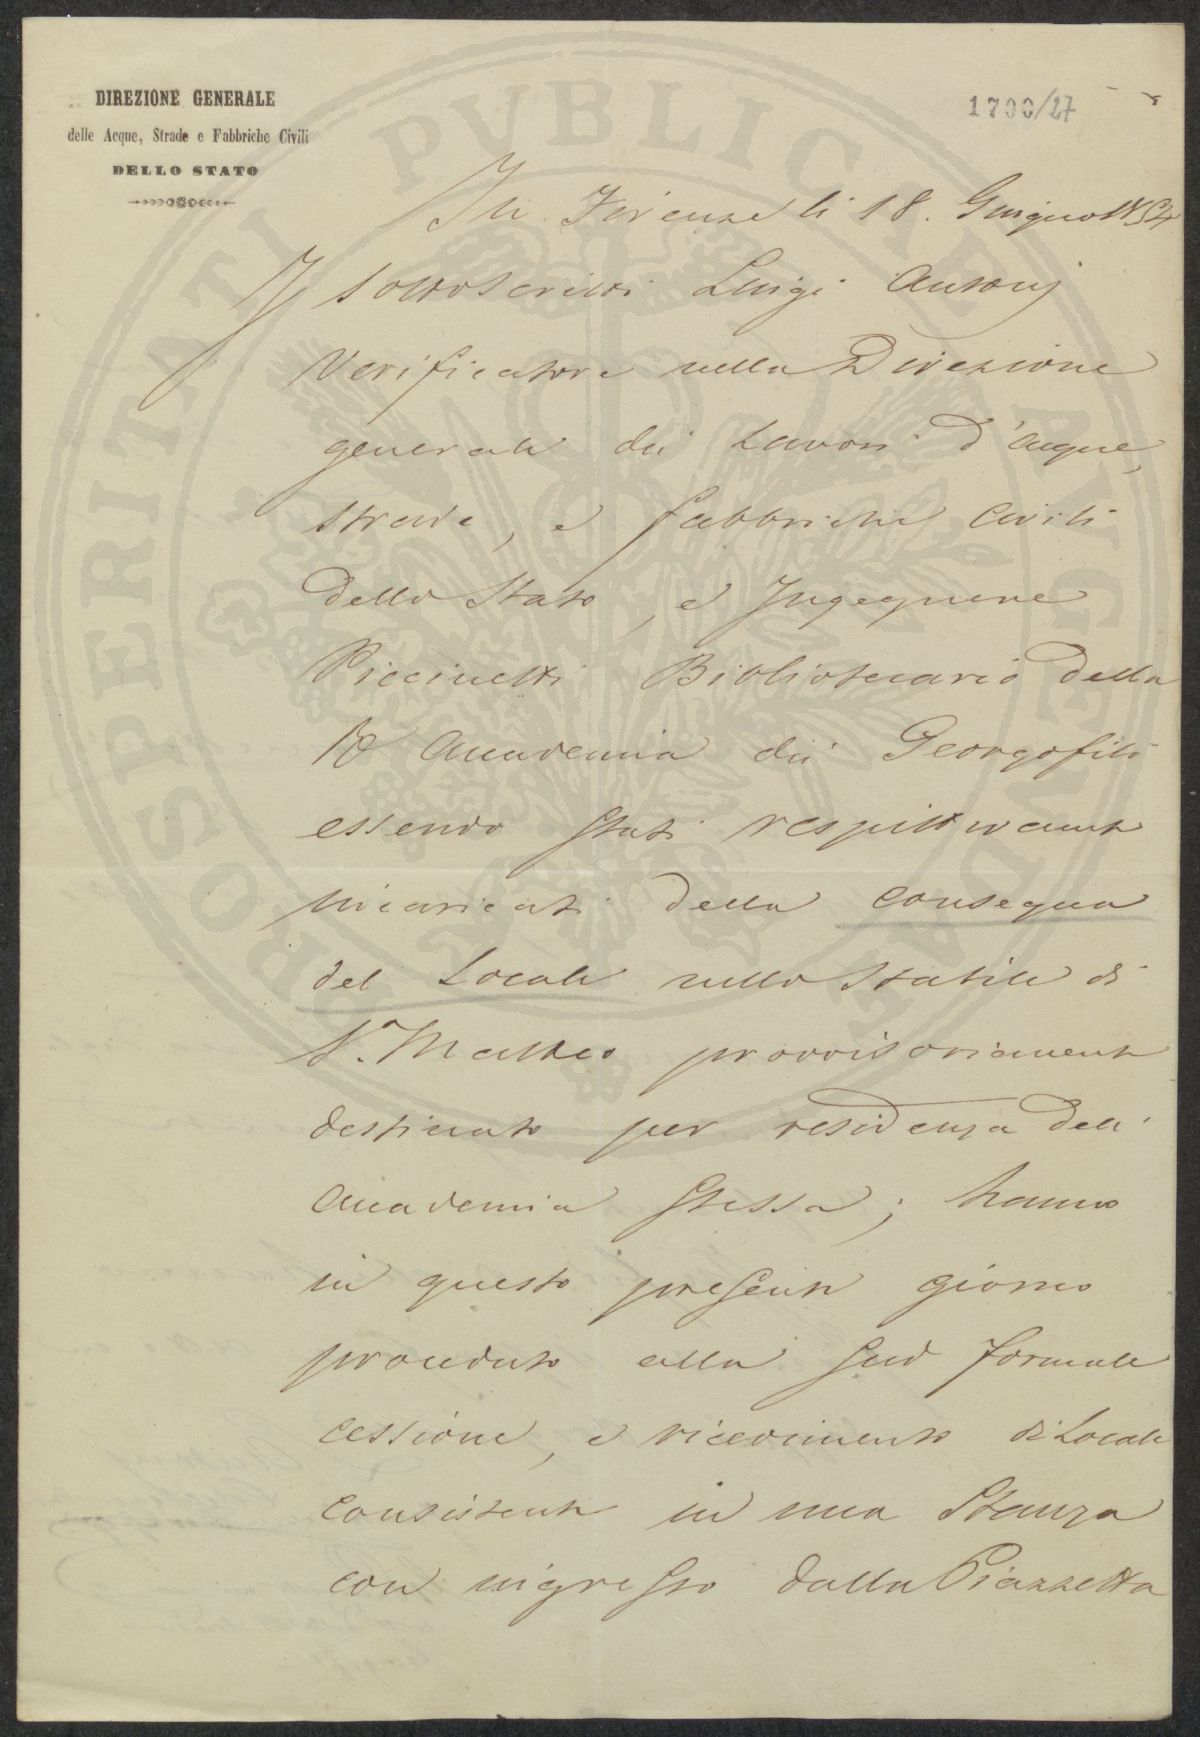 DIREZIONE GENERALE
delle Acque, Strade e Fabbriche Civili
DELLO STATO
1700/27
In Firenze li 18. Giugno
I sottoscritti Luigi Antonj
Verificatore nella Direzione
generale dei Lavori d'acque,
strade, e fabbriche civili
dello Stato, e Ingegnere
Piccinetti Bibliotecario della
R Accademia dei Georgofili
essendo stati respettivamente
incaricati della consegna
del Locale nello Stabile di
S. Matteo provvisoriamente
destinato per residenza dell'
Accademia stessa; hanno
in questo presente giorno
proceduto alla sud formale
cessione, e ricevimento di Locale
consistente in una Stanza
con ingresso dalla Piazzetta
PROSPERITATI PVBLICAE AVGENDAE